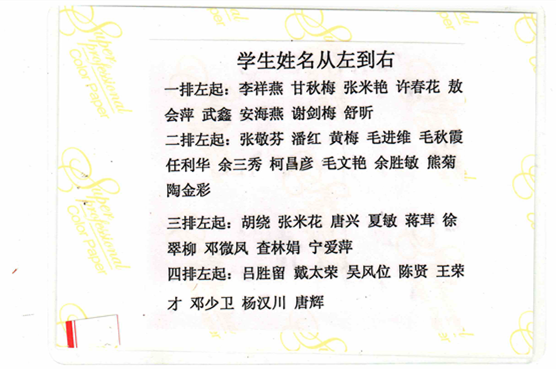 学生姓名从左到右
一排左起：李祥燕 甘秋梅 张米艳 许春花 敖
会萍 武鑫 安海燕 谢剑梅 舒昕
二排左起：张敬芬 潘红 黄梅 毛进维 毛秋霞
任利华 余三秀 柯昌彦 毛文艳 余胜敏 熊菊
陶金彩
三排左起：胡绕 张米花 唐兴 夏敏 蒋茸 徐
翠柳 邓微凤 查林娟 宁爱萍
四排左起：吕胜留 戴太荣 吴风位 陈贤 王荣
才 邓少卫 杨汉川 唐辉
Super
professional
Color Paper
Super
professional
Color Paper